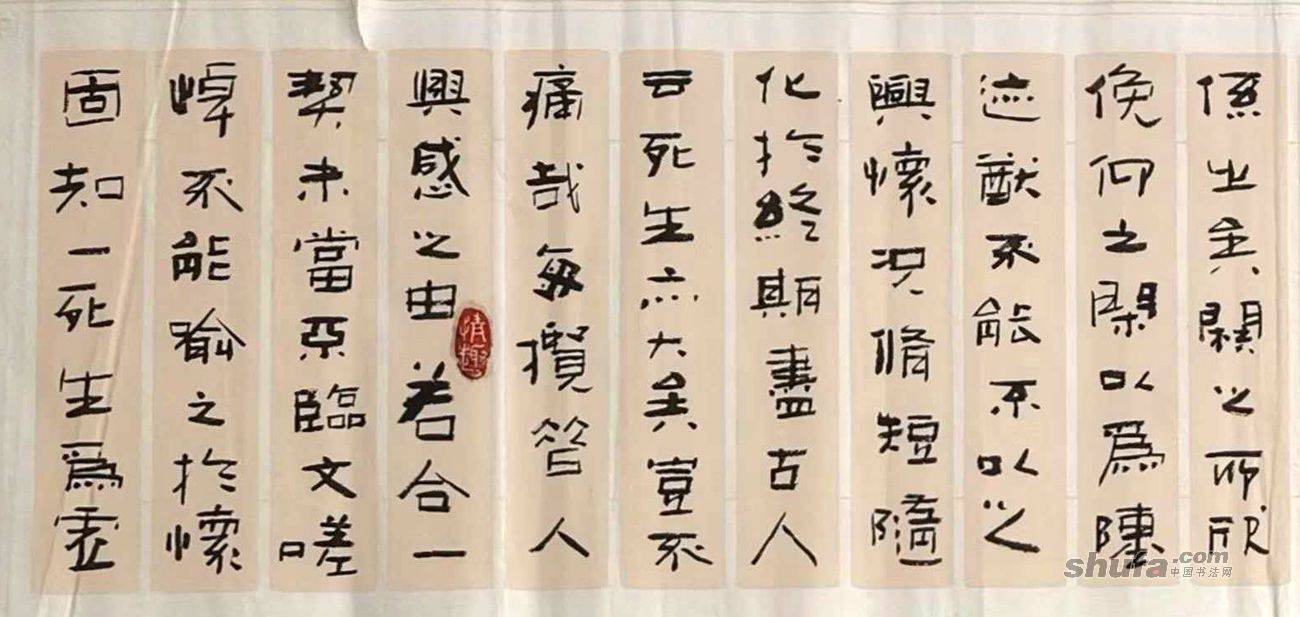 係之矣之所欣
俛仰之閒以爲陳
迹猶不能不以之
興懷況脩短隨
化於終期盡古人
云死生亦大矣豈不
痛哉每攬昔人
興感之由若合一
契未當不臨文嗟
悼不能喻之於懷
固知一死生爲虛
情趣
shufa.com
中国书法网